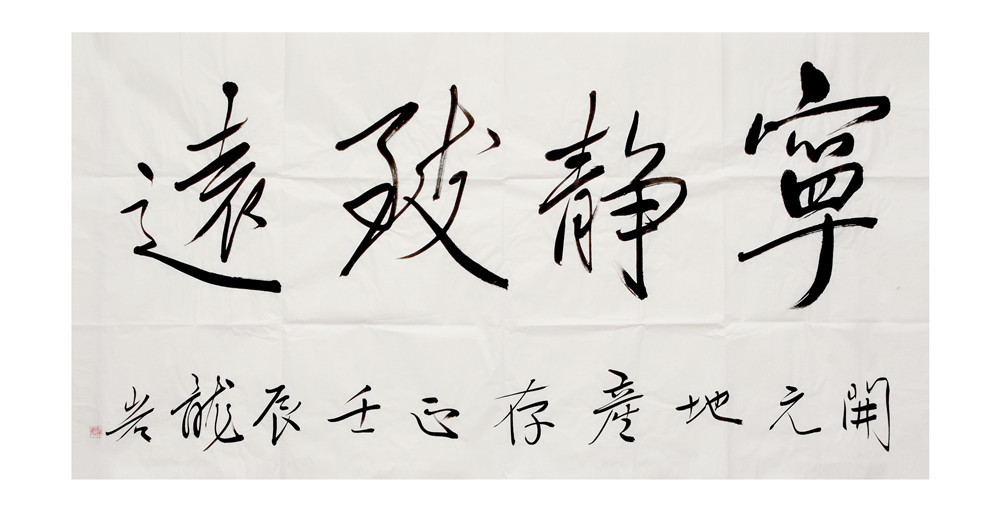 寧静致遠
開元地產存正壬辰龍岩